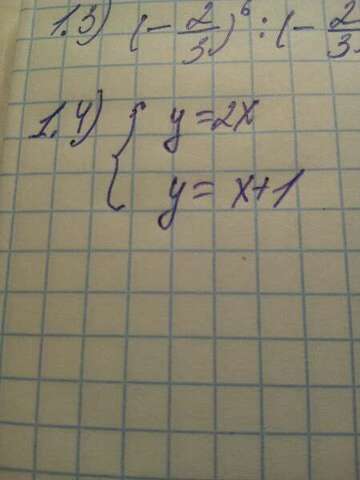 1.3) (-2/3)⁶ : (-2/3
1.4) { y=2x
y= x+1